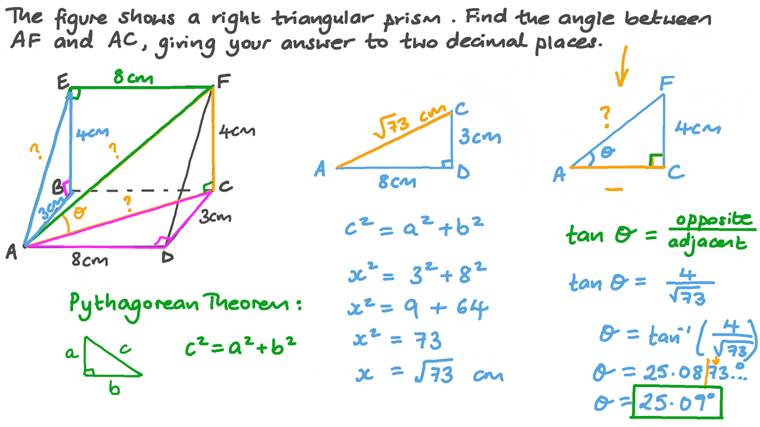 The figure shows a right triangular prism. Find the angle between
AF and AC, giving your answer to two decimal places.
E
8cm
F
?
4cm
?
4cm
B
C
3cm
θ
?
3cm
A
8cm
D
Pythagorean Theorem:
a
c
b
c² = a² + b²
√73 cm
C
3cm
A
8cm
D
c² = a² + b²
x² = 3² + 8²
x² = 9 + 64
x² = 73
x = √73 cm
F
?
4cm
θ
A
C
tan θ = opposite/adjacent
tan θ = 4/√73
θ = tan⁻¹(4/√73)
θ = 25.08|73...°
θ = 25.09°